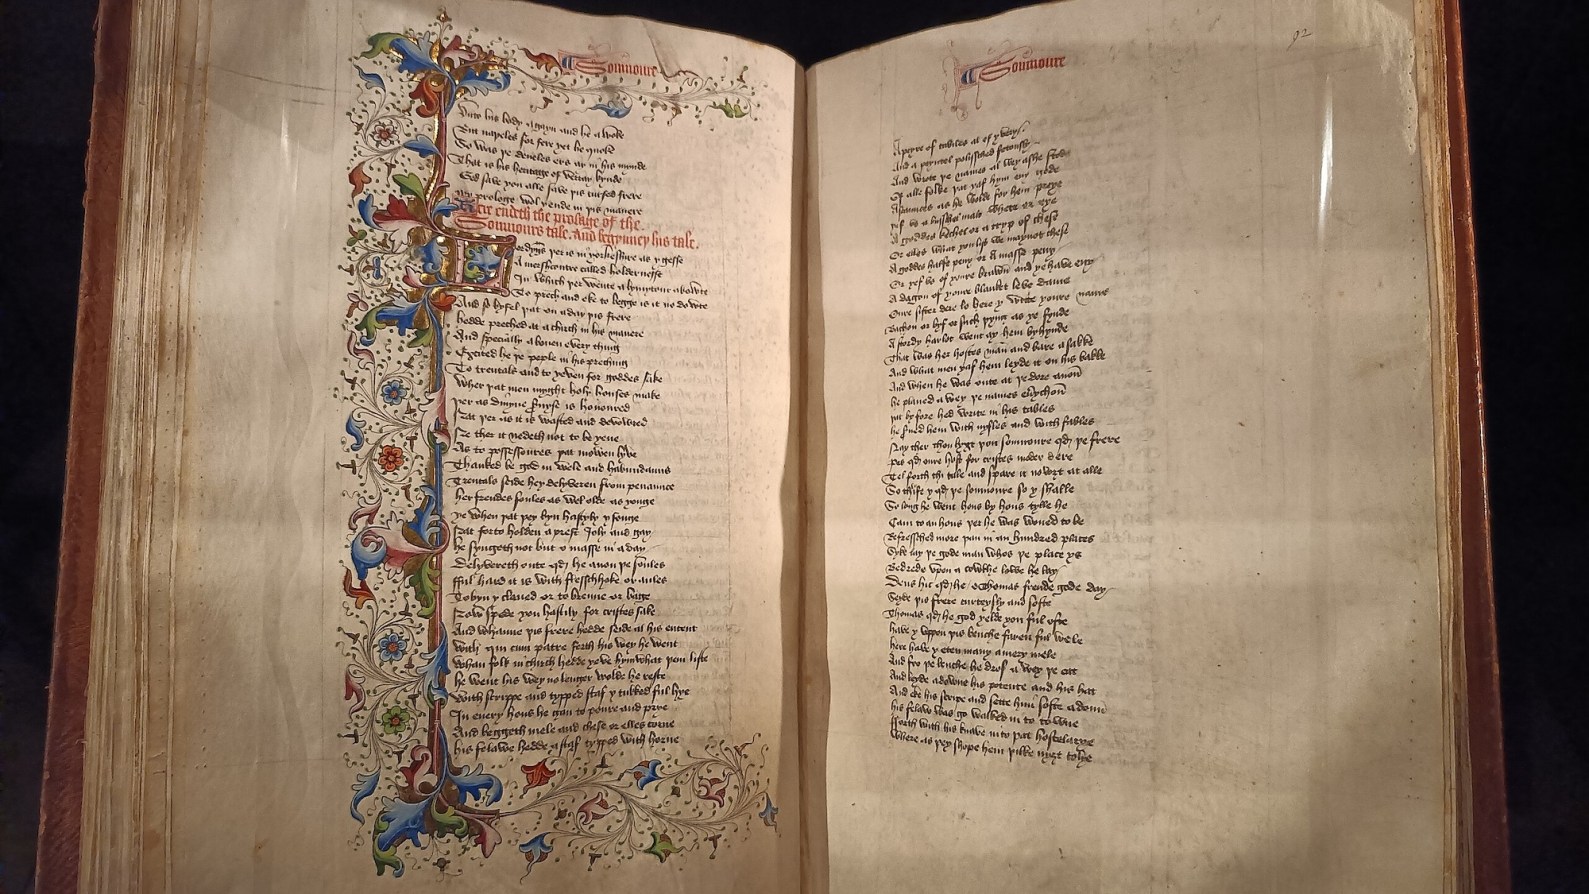 Somnoure
Vnto his body agayn and he a woke
But napeles for fere yet he quoke
So was þe deueles ers ay in his mynde
That is his heritage of verray kynde
God save you alle save þis cursed frere
My prologe wol y ende in þis manere
Here endeth the prologe of the
Somnours tale. And begynneþ his tale.
Lordyngs þer is in yorkesshire as y gesse
A mersshcontre called holdernesse
In which þer wente a lymytour aboute
To prech and eke to begge it is no dowte
And so byfel þat on a day þis frere
hedde preched at a church in his manere
And specially aboven every thing
Excited he þe peple in his preching
To trentals and to yeven for goddes sake
Wher þat men myght holy houses make
þer as divyne servyse is honoured
Nat þer as it is wasted and devoured
Ne ther it nedeth not to be yeve
As to possessoures þat mowen lyve
Thanked be god in wele and habundauns
Trentals seide he delyveren from penaunce
her frendes soules as wel olde as yonge
ye when þat þey byn hastyly y songe
Nat forto holden a prest Joly and gay
he syngeth not but o masse in a day
Delyvereth oute qd he anon þe soules
fful hard it is with flesshhoke or oules
To byn y clawed or to brenne or bake
Now spede you hastily for cristes sake
And whanne þis frere hedde seide al his entent
With qui cum patre forth his wey he went
Whan folk in church hedde yeve hym what þem liste
he went his wey no lenger wolde he reste
With scrippe and typped staf y tukked ful hye
In every hous he gan to poure and prye
And beggeth mele and chese or elles corne
his felawe hedde a staf typped with horne
Somnoure
92
A peyre of tables al of yvery
And a poyntel polisshed fetously
And wrote þe names al wey as he stod
Of alle folke þat yaf hym eny gode
Ascaunces as he wolde for hem preye
yef vs a busshel malt whete or reye
A goddes kechel or a tryp of chese
Or elles what you lis we may not chese
A goddes halfe peny or A masse peny
Or yef vs of youre brawn and ye have eny
A dagon of youre blanket leve dame
Oure suster dere lo here y write youre name
Bachon or byf or such þyng as ye fynde
A stordy harlot went ay hem byhynde
That was her hostes man and bare a sakke
And what men yaf hem leyde it on his bakke
And when he was oute at þe dore anon
he planed a wey þe names everychon
þat byfore hed write in his tables
he served hem with nyfles and with fables
Nay ther thou lyxt þou somnoure qd þe frere
Pes qd oure host for cristes moder dere
Tel forth thi tale and spare it nowt at alle
So thryfe y qd þe somnoure so y shalle
So long he went hous by hous tylle he
Cam to an hous þer he was woned to be
Refresshed more þan in an hundred places
Syke lay þe gode man whos þe place ys
Bedrede vpon a cowche lowe he lay
Deus hic qd he o Thomas frende gode day
Seyde þis frere curteysly and softe
Thomas qd he god yelde you ful ofte
have y vppon þis benche faren ful wele
here have y eten many a mery mele
And fro þe benche he drof a wey þe catt
And leyde adowne his potente and his hat
And eke his scripe and sette him softe adoun
his felaw was go walked in to towne
fforth with his knave into þat hostelarye
Where as þey shope hem þilke nyzt to lye